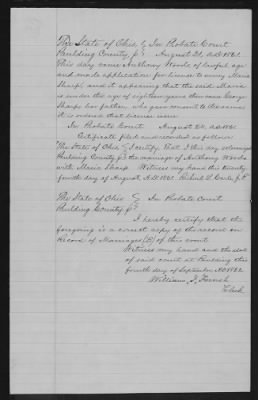 The State of Ohio } In Probate Court
Paulding County, ss } August 21, A.D. 1861.
This day came Anthony Woods of lawful age
and made application for license to marry Maria
Sharp, and it appearing that the said Maria
is under the age of eighteen years then came George
Sharp her father who gave consent to the same
it is ordered that license issue
In Probate Court August 26, A.D. 1861.
Certificate filed and recorded as follows
The State of Ohio } I certify that I this day solemnized
Paulding County ss } the marriage of Anthony Woods
with Maria Sharp Witness my hand this twenty
fourth day of August A.D. 1861.
The State of Ohio } In Probate Court
Paulding County, ss }
I hereby certify that the
foregoing is a correct copy of the record on
Record of Marriages (B) of this court
Witness my hand and the seal
of said court at Paulding this
fourth day of September AD 1882.
William J. French
Clerk